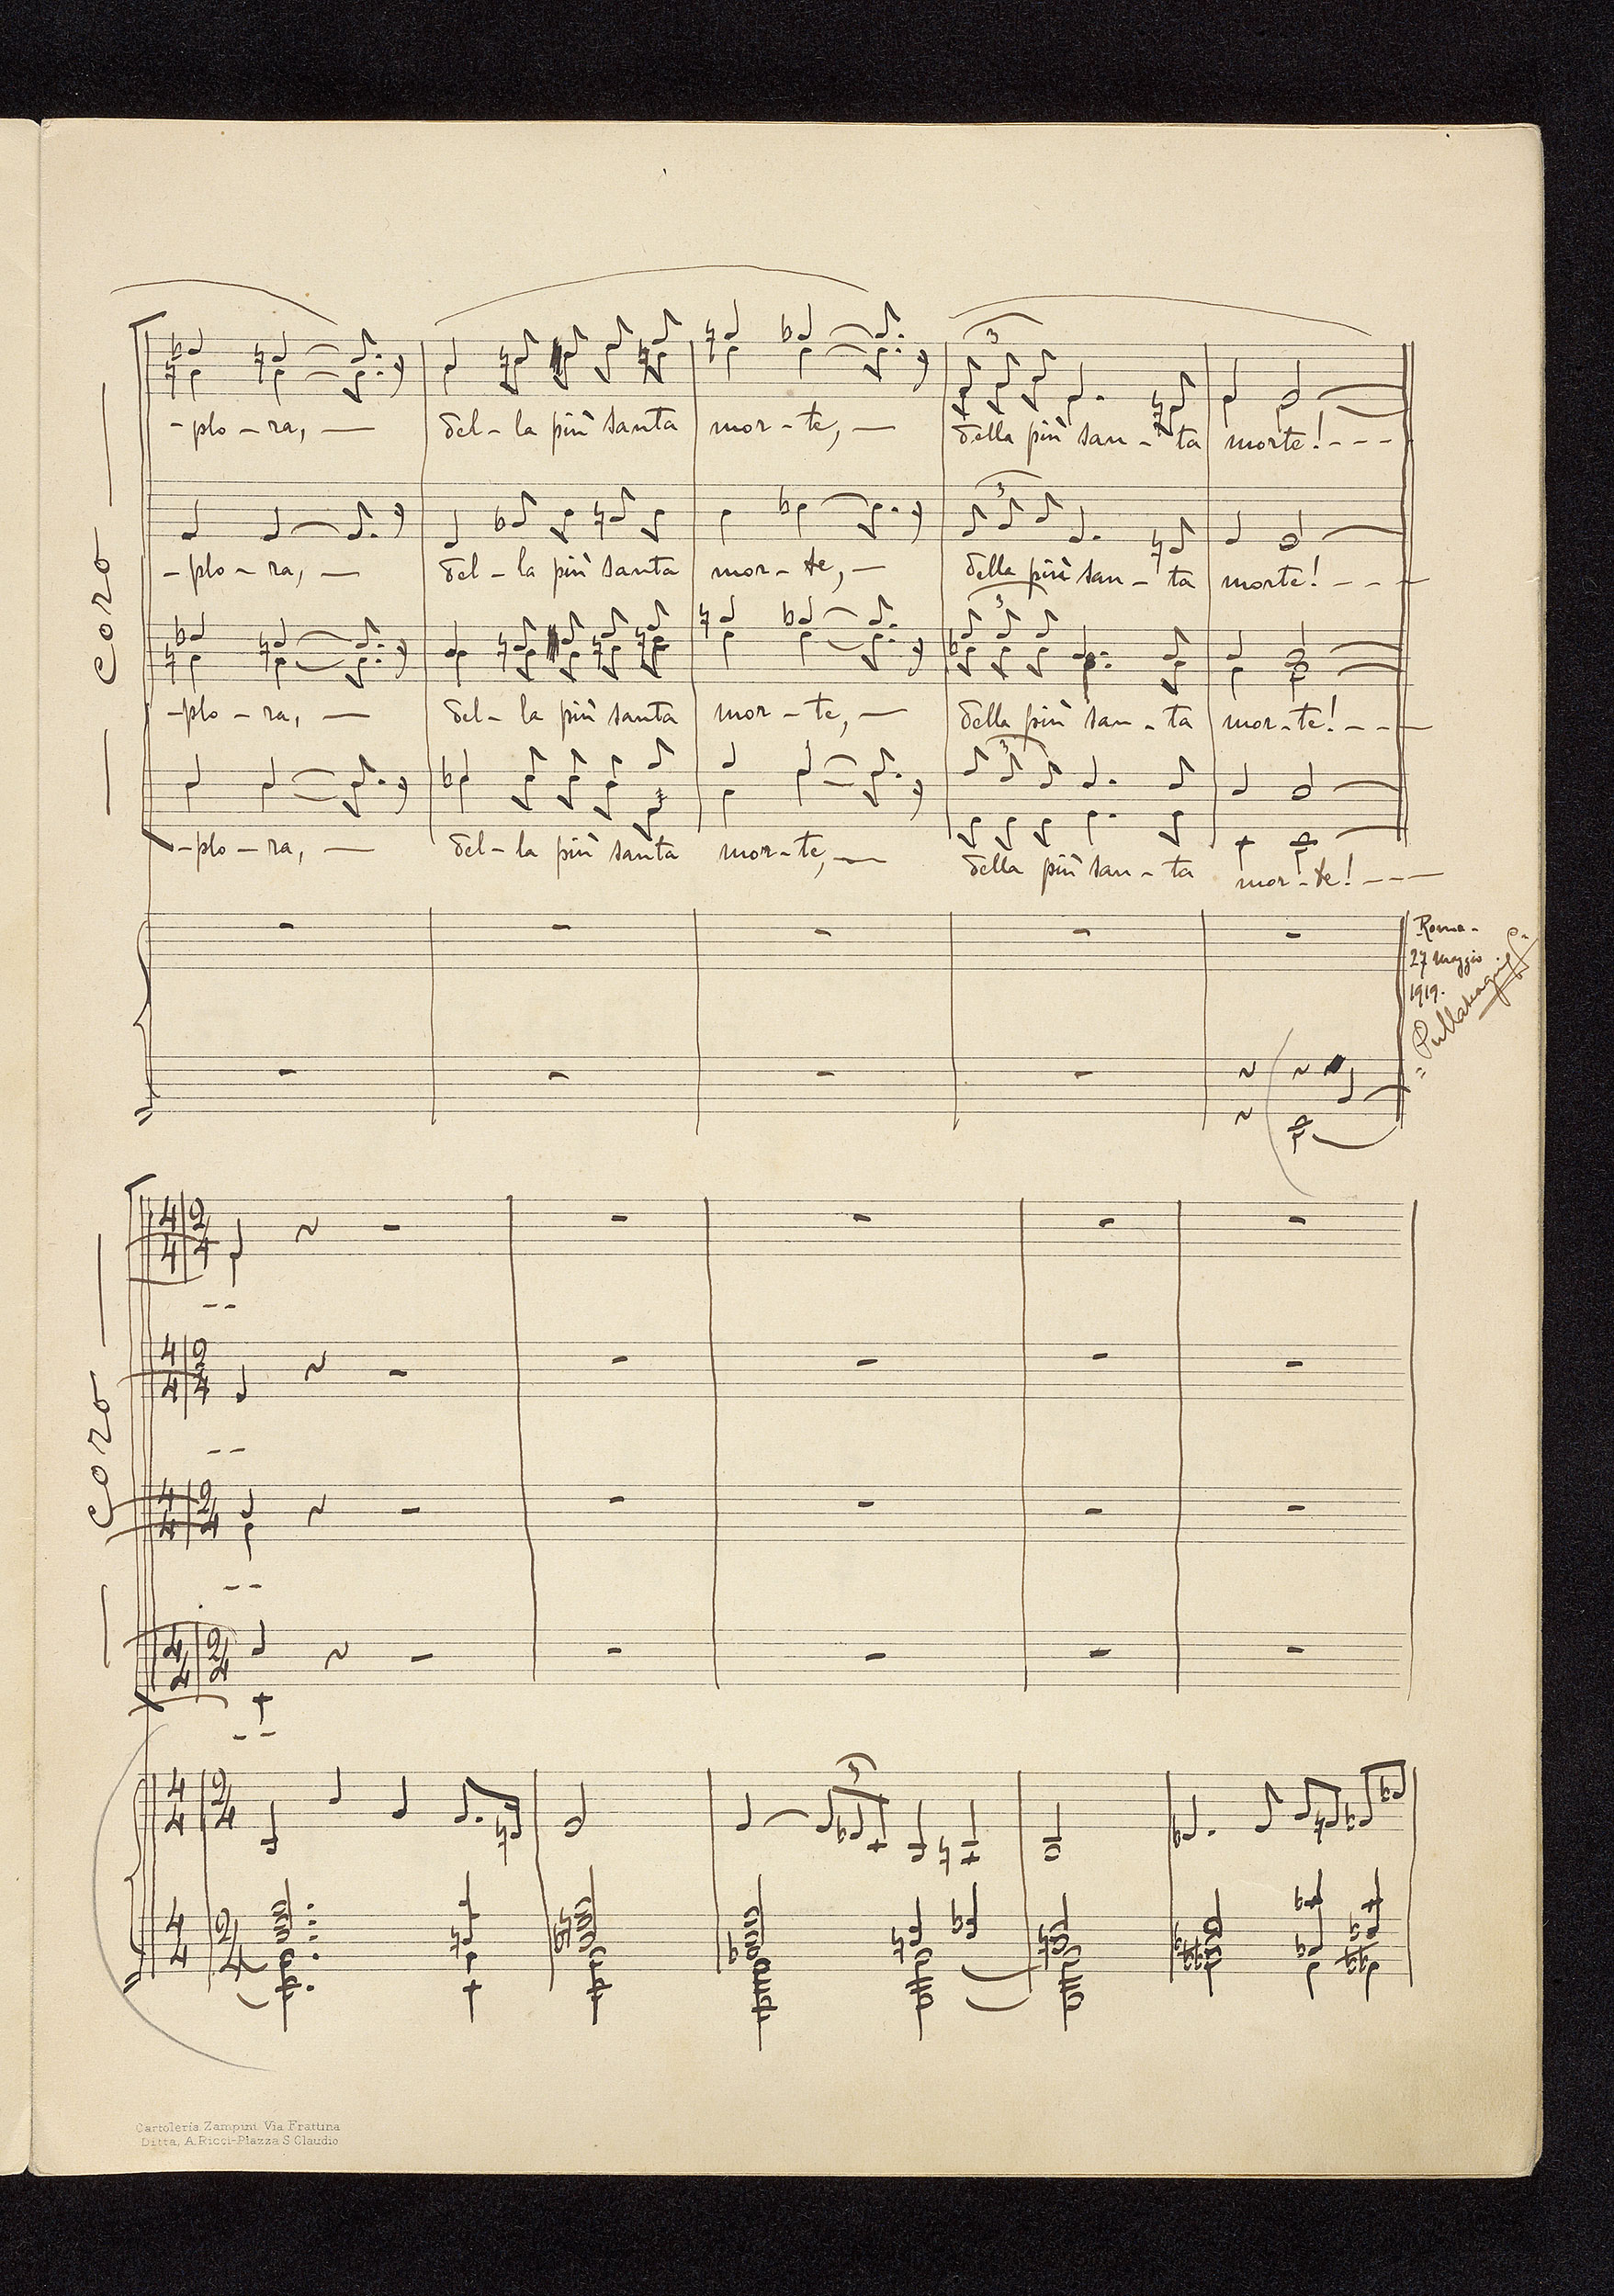 -plo-ra, — del-la più santa mor-te, — della più san-ta morte!---
-plo-ra, — del-la più santa mor-te, — della più san-ta morte!---
-plo-ra, — del-la più santa mor-te, — della più san-ta mor-te!---
-plo-ra, — del-la più santa mor-te, — della più san-ta mor-te!---
— Coro —
Roma-
27 Maggio
1919.
— Coro —
Cartoleria Zampini Via Frattina
Ditta, A. Ricci-Piazza S. Claudio